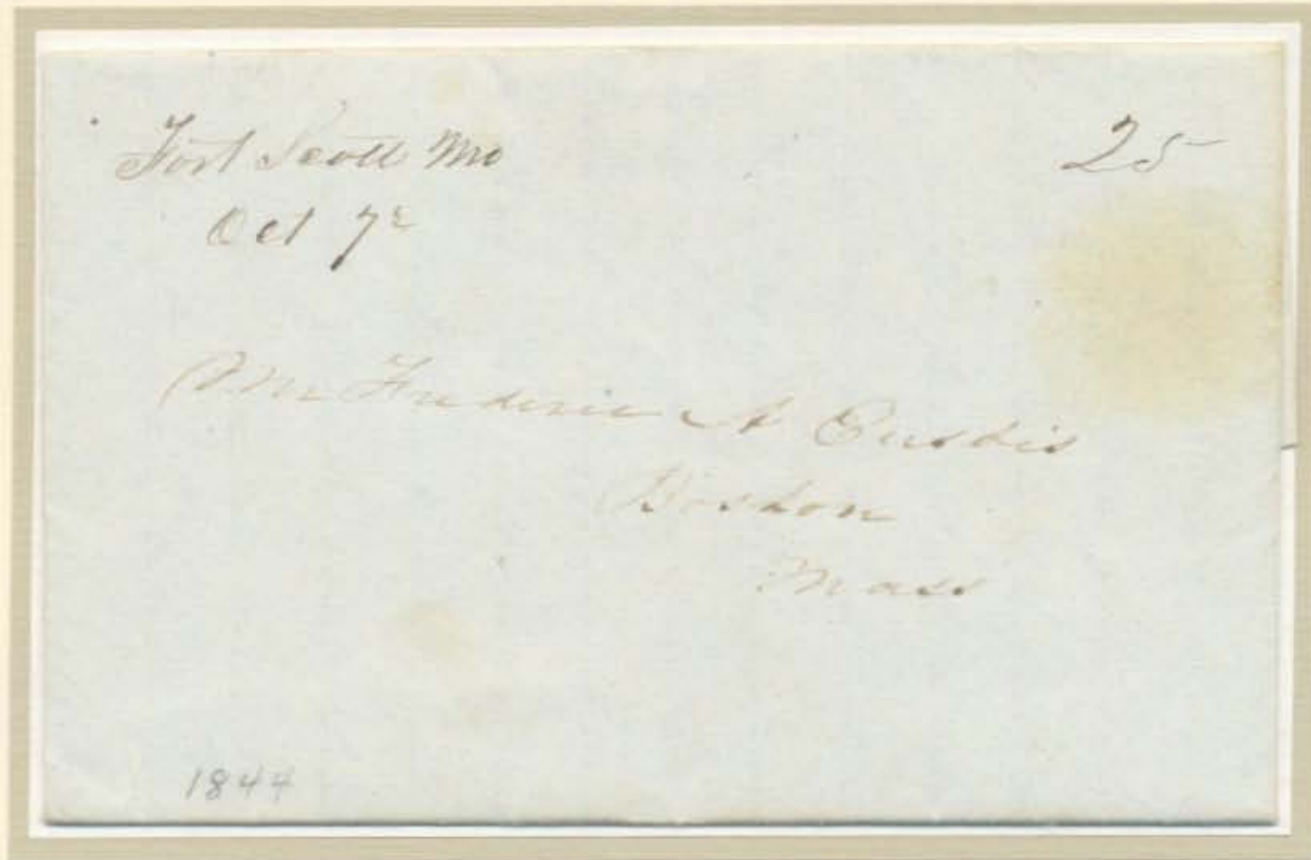 Fort Scott Mo
25
Oct 7
Mr Frederic A Eustis
Boston
Mass
1844